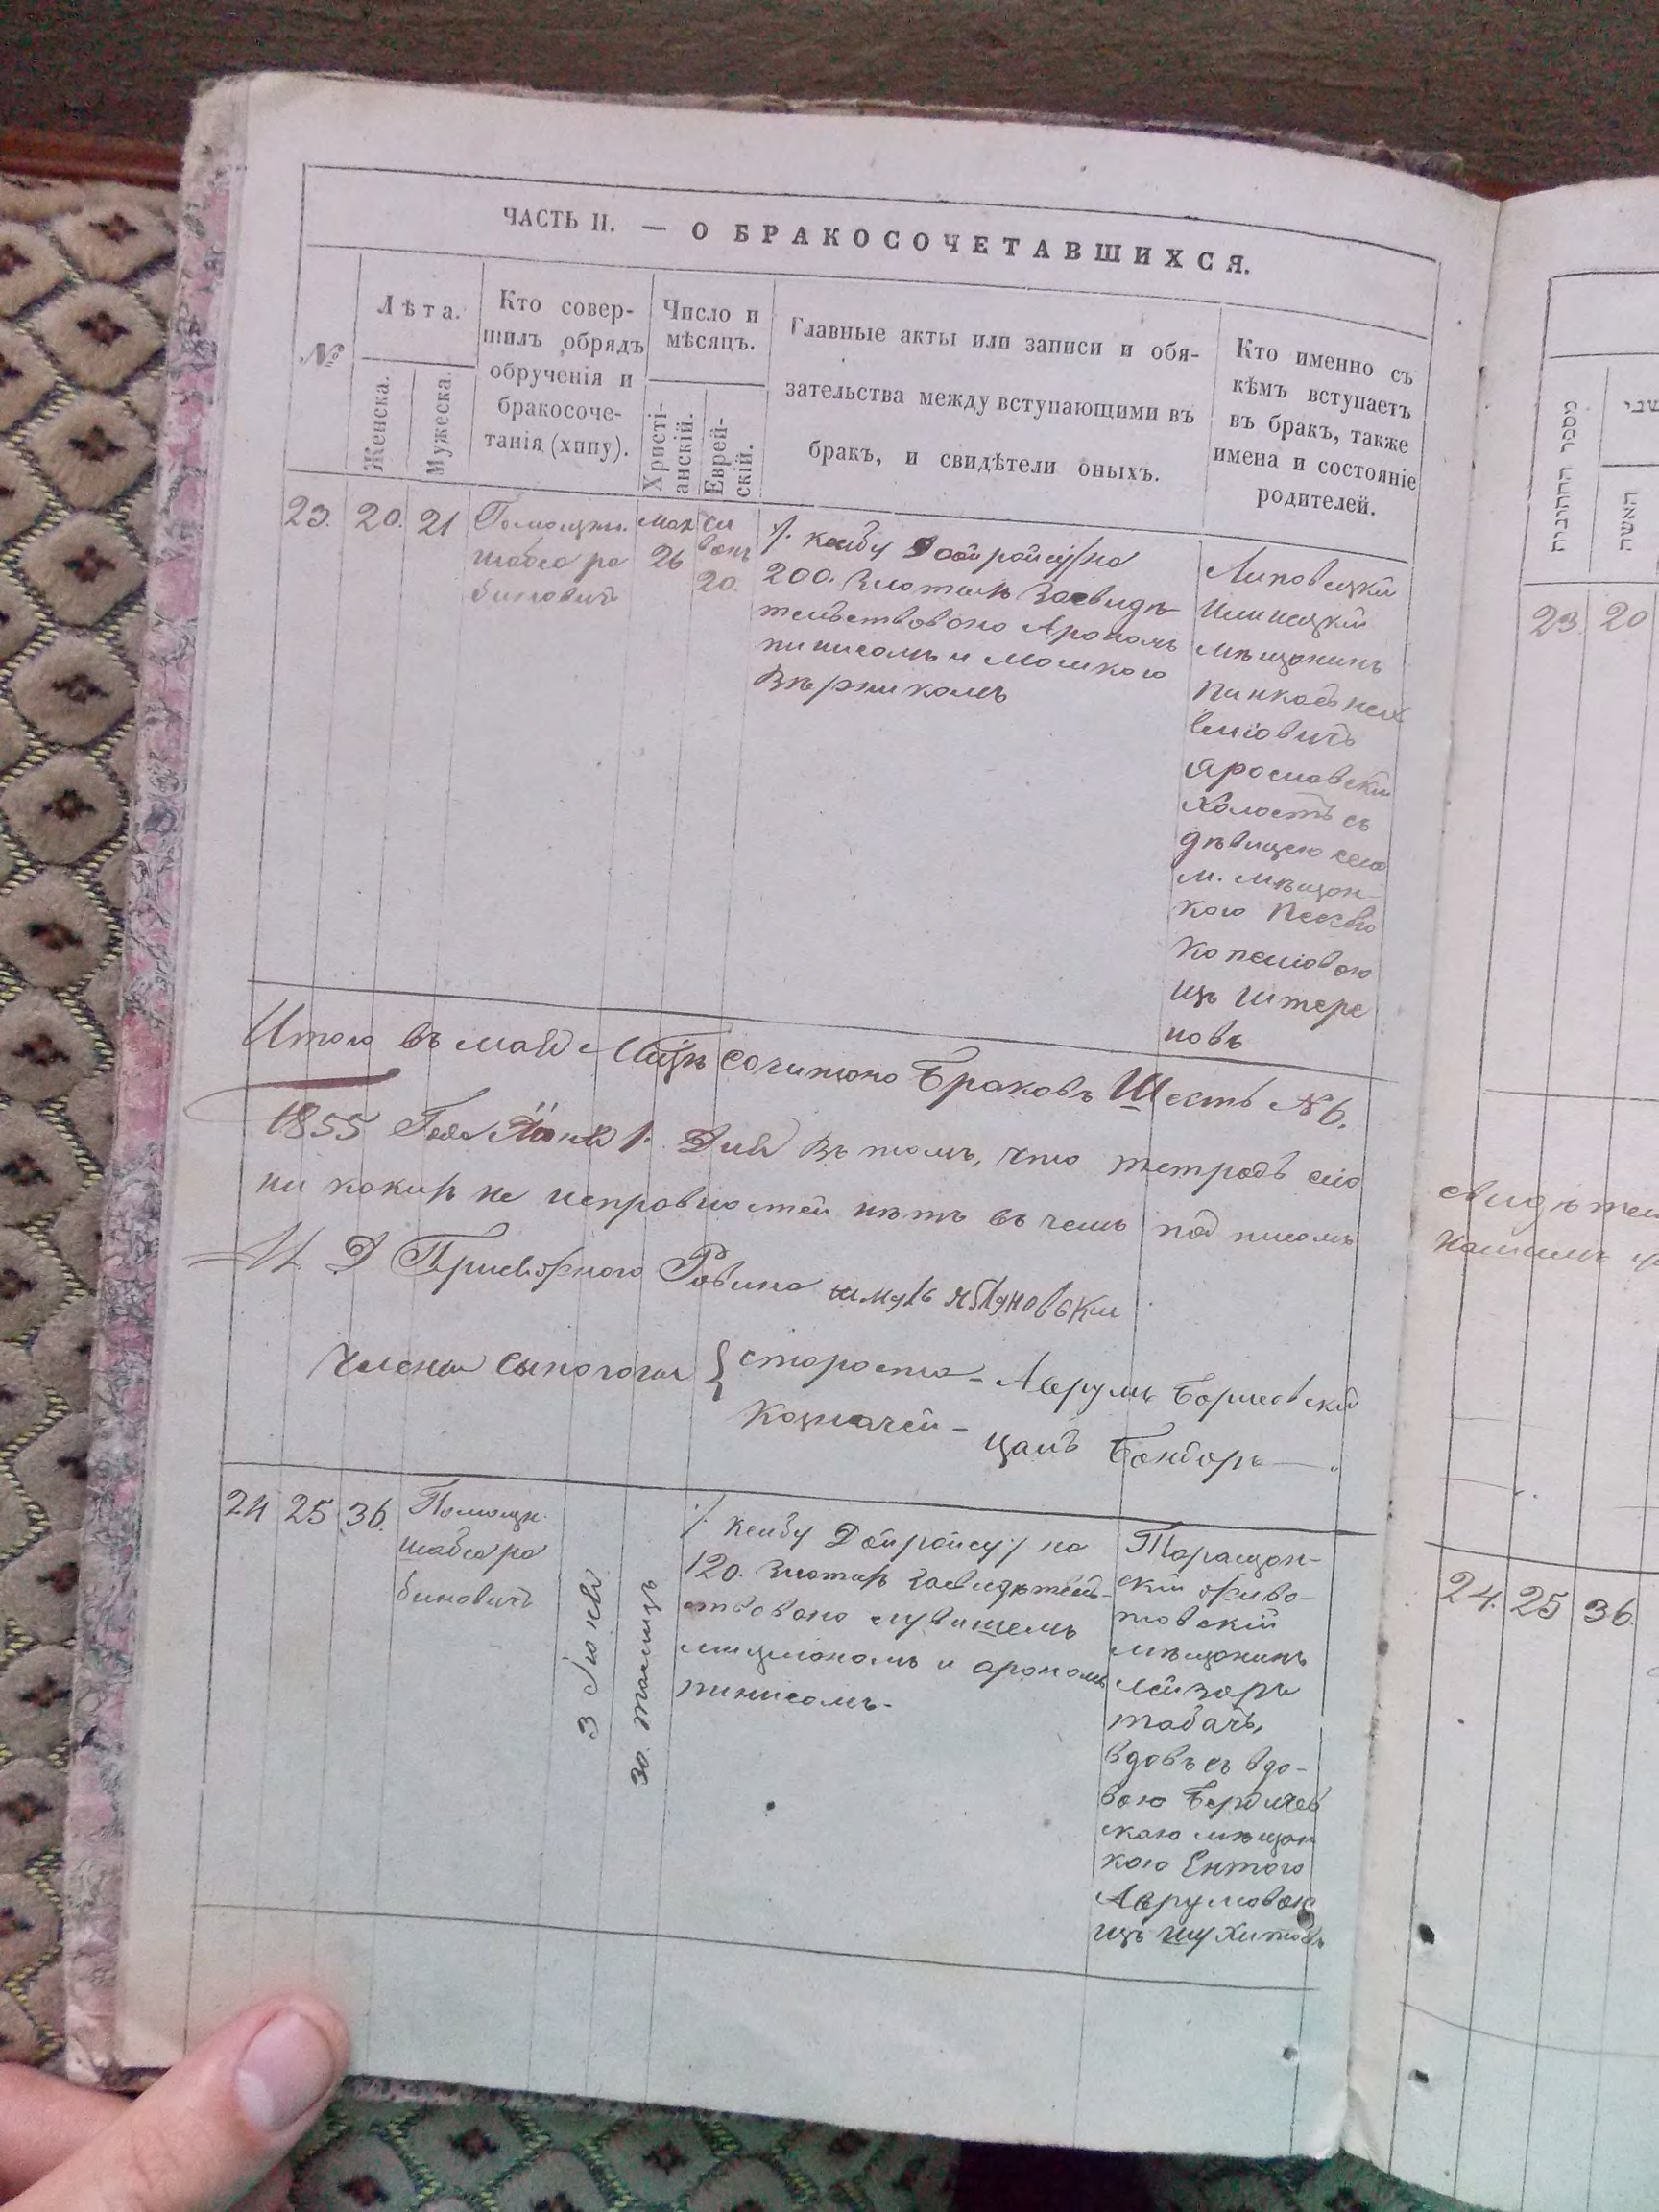 ЧАСТЬ II. — О БРАКОСОЧЕТАВШИХСЯ.
№
Лѣта.
Женска.
Мужеска.
Кто совер-
шилъ обрядъ
обрученія и
бракосоче-
танія (хппу).
Число и
мѣсяцъ.
Христі-
анскій.
Еврей-
скій.
Главные акты или записи и обя-
зательства между вступающими въ
бракъ, и свидѣтели оныхъ.
Кто именно съ
кѣмъ вступаетъ
въ бракъ, также
имена и состояніе
родителей.
23. 20. 21
Помощн.
шабса ра
биновичъ
мая
26
си
ванъ
20.
на
200. Злотыхъ Засвидѣ
тельствовано Арономъ
пинисомъ и Мошкою
Липовецкій
Илинецкій
мѣщанинъ
Ярославскій
Холостъ съ
дѣвицею сего
м. мѣщан-
кою
изъ Штере
новъ
Итого въ маѣ Мцѣ сочитано Браковъ Шесть №6.
1855 Года Іюня 1. Дня Въ томъ, что тетрадь сія
ни какихъ не исправностей нѣтъ въ чемъ подписомъ
И. Д Равина шмуль яблуновски
Члены Сынагоги { староста - Аврумъ Борщевскій
Казначей - цаль Бондарь
24 25 36.
Помощн.
шабса ра
биновичъ
3 Июня
30. тамизъ
на
120. Злотыхъ Засвидѣтель-
ствовано
и ароном
пинисомъ-
Таращан-
скій живо-
товскій
мѣщанинъ
Лейзоръ
табачъ,
вдовъ съ вдо-
вою Бердичев
скою мѣщан
кою Ентою
Аврумовою
изъ
מספר החתונות
האשה
23. 20
24. 25 36.